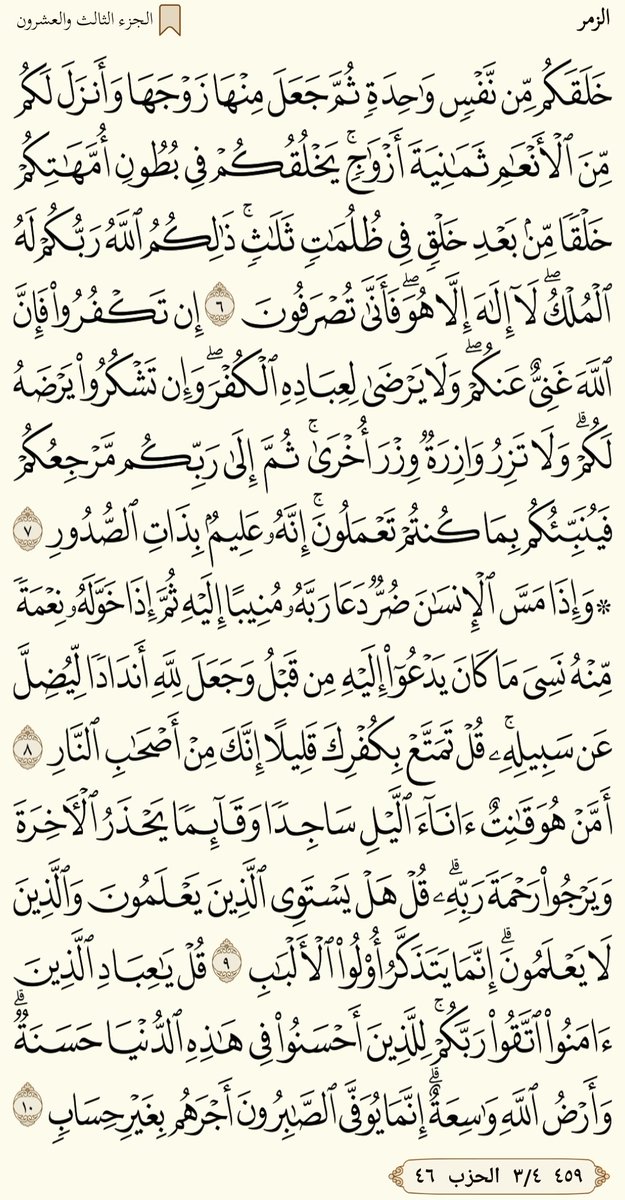 الزمر
الجزء الثالث والعشرون
خَلَقَكُم مِّن نَّفۡسٖ وَٰحِدَةٖ ثُمَّ جَعَلَ مِنۡهَا زَوۡجَهَا وَأَنزَلَ لَكُم
مِّنَ ٱلۡأَنۡعَٰمِ ثَمَٰنِيَةَ أَزۡوَٰجٖۚ يَخۡلُقُكُمۡ فِي بُطُونِ أُمَّهَٰتِكُمۡ
خَلۡقٗا مِّنۢ بَعۡدِ خَلۡقٖ فِي ظُلُمَٰتٖ ثَلَٰثٖۚ ذَٰلِكُمُ ٱللَّهُ رَبُّكُمۡ لَهُ
ٱلۡمُلۡكُۖ لَآ إِلَٰهَ إِلَّا هُوَۖ فَأَنَّىٰ تُصۡرَفُونَ ٦ إِن تَكۡفُرُواْ فَإِنَّ
ٱللَّهَ غَنِيٌّ عَنكُمۡۖ وَلَا يَرۡضَىٰ لِعِبَادِهِ ٱلۡكُفۡرَۖ وَإِن تَشۡكُرُواْ يَرۡضَهُ
لَكُمۡۗ وَلَا تَزِرُ وَازِرَةٞ وِزۡرَ أُخۡرَىٰۚ ثُمَّ إِلَىٰ رَبِّكُم مَّرۡجِعُكُمۡ
فَيُنَبِّئُكُم بِمَا كُنتُمۡ تَعۡمَلُونَۚ إِنَّهُۥ عَلِيمُۢ بِذَاتِ ٱلصُّدُورِ ٧
۞ وَإِذَا مَسَّ ٱلۡإِنسَٰنَ ضُرّٞ دَعَا رَبَّهُۥ مُنِيبًا إِلَيۡهِ ثُمَّ إِذَا خَوَّلَهُۥ نِعۡمَةٗ
مِّنۡهُ نَسِيَ مَا كَانَ يَدۡعُوٓاْ إِلَيۡهِ مِن قَبۡلُ وَجَعَلَ لِلَّهِ أَندَادٗا لِّيُضِلَّ
عَن سَبِيلِهِۦۚ قُلۡ تَمَتَّعۡ بِكُفۡرِكَ قَلِيلًا إِنَّكَ مِنۡ أَصۡحَٰبِ ٱلنَّارِ ٨
أَمَّنۡ هُوَ قَٰنِتٌ ءَانَآءَ ٱلَّيۡلِ سَاجِدٗا وَقَآئِمٗا يَحۡذَرُ ٱلۡأٓخِرَةَ
وَيَرۡجُواْ رَحۡمَةَ رَبِّهِۦۗ قُلۡ هَلۡ يَسۡتَوِي ٱلَّذِينَ يَعۡلَمُونَ وَٱلَّذِينَ
لَا يَعۡلَمُونَۗ إِنَّمَا يَتَذَكَّرُ أُوْلُواْ ٱلۡأَلۡبَٰبِ ٩ قُلۡ يَٰعِبَادِ ٱلَّذِينَ
ءَامَنُواْ ٱتَّقُواْ رَبَّكُمۡۚ لِلَّذِينَ أَحۡسَنُواْ فِي هَٰذِهِ ٱلدُّنۡيَا حَسَنَةٞۗ
وَأَرۡضُ ٱللَّهِ وَٰسِعَةٌۗ إِنَّمَا يُوَفَّى ٱلصَّٰبِرُونَ أَجۡرَهُم بِغَيۡرِ حِسَابٖ ١٠
٤٥٩ ٣/٤ الحزب ٤٦